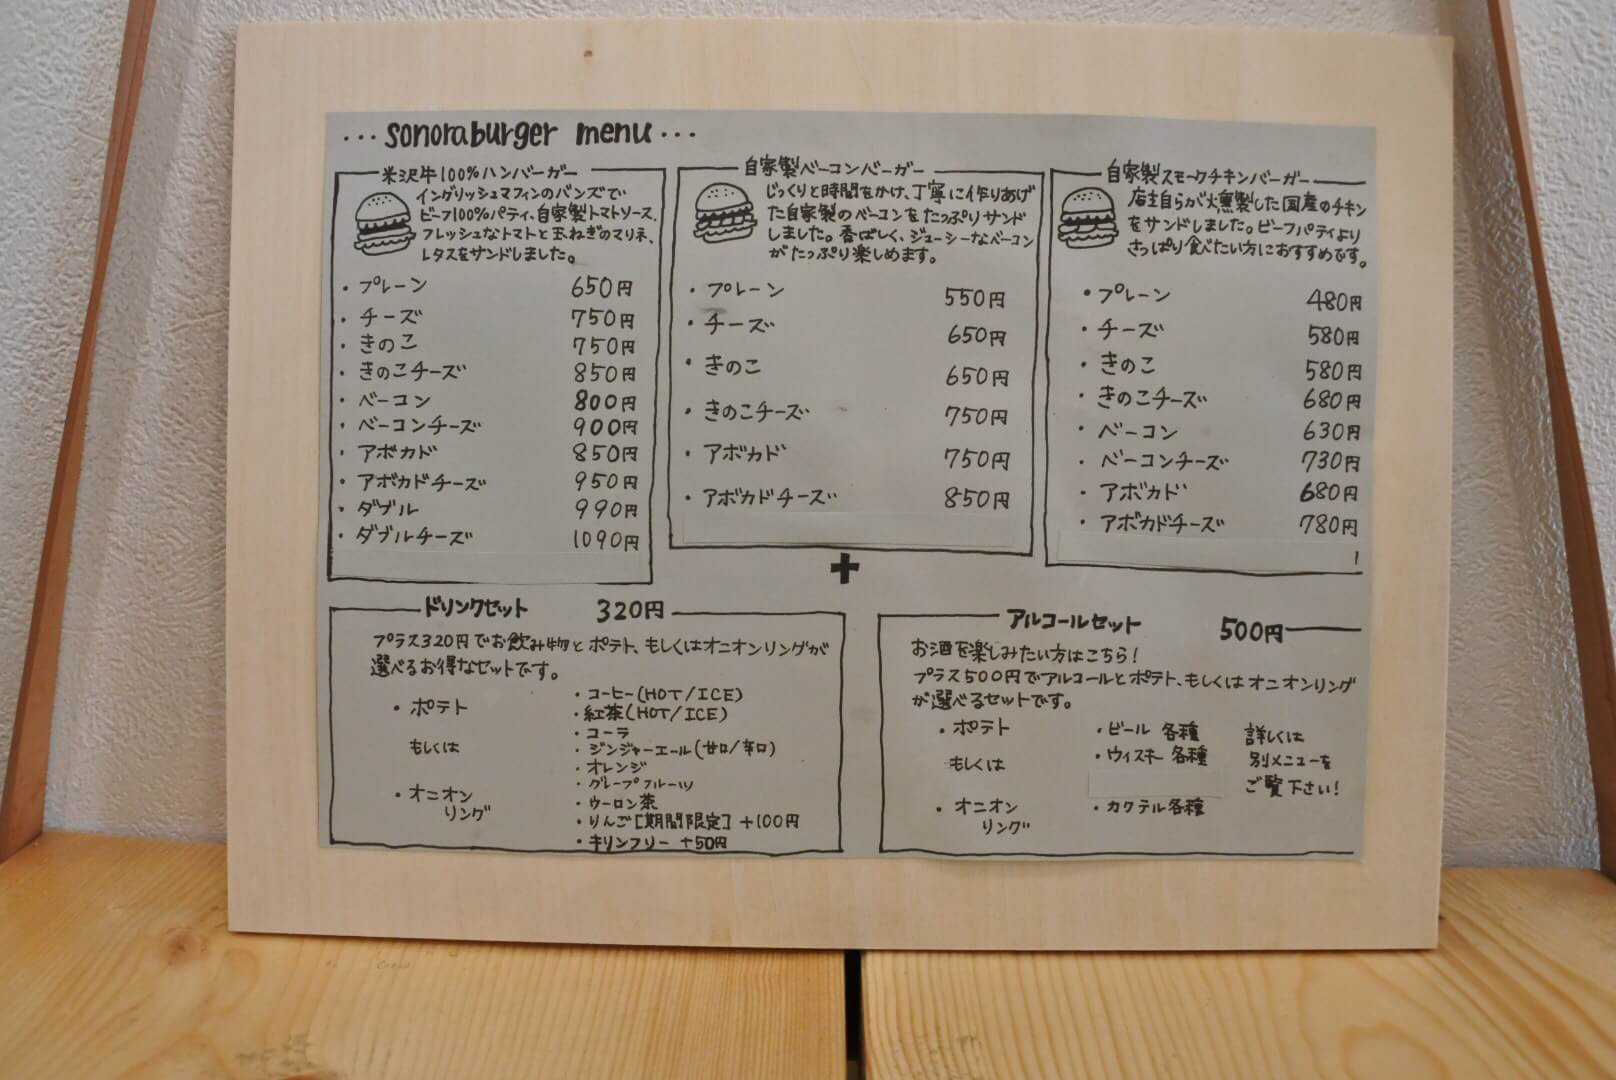 ... sonoraburger menu ...
米沢牛100%ハンバーガー
イングリッシュマフィンのバンズで
ビーフ100%パティ、自家製トマトソース、
フレッシュなトマトと玉ねぎのマリネ、
レタスをサンドしました。
・プレーン 650円
・チーズ 750円
・きのこ 750円
・きのこチーズ 850円
・ベーコン 800円
・ベーコンチーズ 900円
・アボカド 850円
・アボカドチーズ 950円
・ダブル 990円
・ダブルチーズ 1090円
自家製ベーコンバーガー
じっくりと時間をかけ、丁寧に作りあげ
た自家製のベーコンをたっぷりサンド
しました。香ばしく、ジューシーなベーコン
がたっぷり楽しめます。
・プレーン 550円
・チーズ 650円
・きのこ 650円
・きのこチーズ 750円
・アボカド 750円
・アボカドチーズ 850円
自家製スモークチキンバーガー
店主自らが燻製した国産のチキン
をサンドしました。ビーフパティより
さっぱり食べたい方におすすめです。
・プレーン 480円
・チーズ 580円
・きのこ 580円
・きのこチーズ 680円
・ベーコン 630円
・ベーコンチーズ 730円
・アボカド 680円
・アボカドチーズ 780円
+
ドリンクセット 320円
プラス320円でお飲み物とポテト、もしくはオニオンリングが
選べるお得なセットです。
・ポテト
もしくは
・オニオン
リング
・コーヒー(HOT/ICE)
・紅茶(HOT/ICE)
・コーラ
・ジンジャーエール(甘口/辛口)
・オレンジ
・グレープフルーツ
・ウーロン茶
・りんご[期間限定] +100円
・キリンフリー +50円
アルコールセット 500円
お酒を楽しみたい方はこちら!
プラス500円でアルコールとポテト、もしくはオニオンリング
が選べるセットです。
・ポテト
もしくは
・オニオン
リング
・ビール 各種
・ウィスキー 各種
・カクテル各種
詳しくは
別メニューを
ご覧下さい!